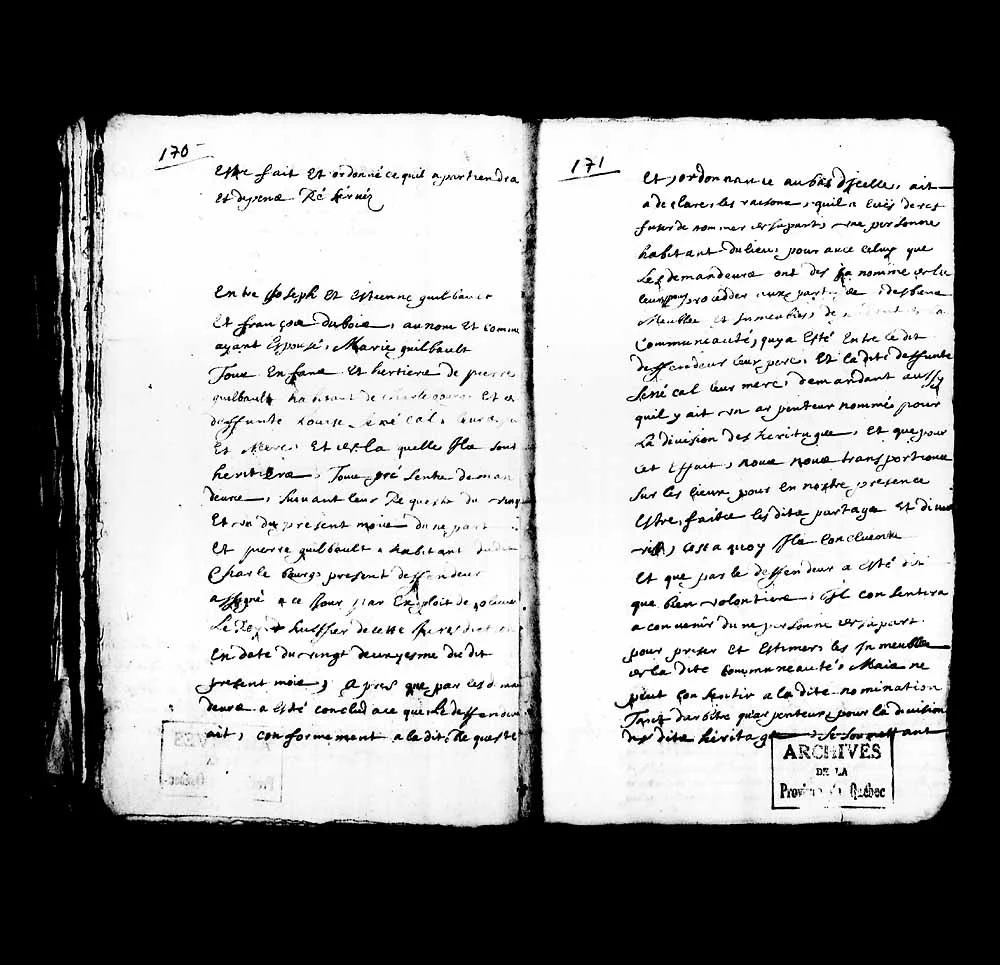 170
Estre fait et ordonné ce quil apartiendra
et depens Réservéz
Entre Joseph et Estienne guilbault
Et françois dubois, au nom et comme
ayant Espousé, Marie guilbault
Tous Enfans et hertiers de pierre
guilbault habitant de Et de
deffunte Louise senécal, leurs
Et Mere, Et de la quelle Ils sont
heritiers, Tous présents deman
deurs, suivant leur Requeste du vingt
Et un du present mois dune part
Et pierre guilbault habitant dudit
Charle bourg present deffendeur
assigné a ce Jour par Exploit de
Le huissier de cette Jurisdiction
En date du vingt deuxyesme du dit
present mois, apres que par les deman
deurs a esté conclud ace que le deffendeur
ait, conformement a la dite Requeste
171
Et, ordonnance au bas dycelle, ait
a declarer, les raisons, quil a Eues de ref
fuser de nommer de sa part, une personne
habitant du lieu, pour avec celuy que
Les demandeurs ont des Ja nommé de le
leur, pour procedder aux partages des biens
Meubles et Immeubles, de la
Communeauté, quy a Esté Entre le dit
deffendeur leur pere, Et la dite deffunte
senécal leur mere, demandant aussy
quil y ait un arpenteur nommé pour
La division des heritages, Et que pour
cet Effait, nous nous transportions
sur les lieux pour En nostre presence
Estre, faites les dits partages Et divi
, cest a quoy Ils Concluent
Et que par le deffendeur a esté dit
que bien volontiers, Il consentira
a convenir dune personne de sa part
pour priser Et Estimer, les Immeubles
de la dite Communeauté, Mais ne
peut Consentir a la dite nomination
Tant darbitre quarpenteur, pour la division
des dits héritages, se soumettant
ARCHIVES
DE LA
Province de Québec